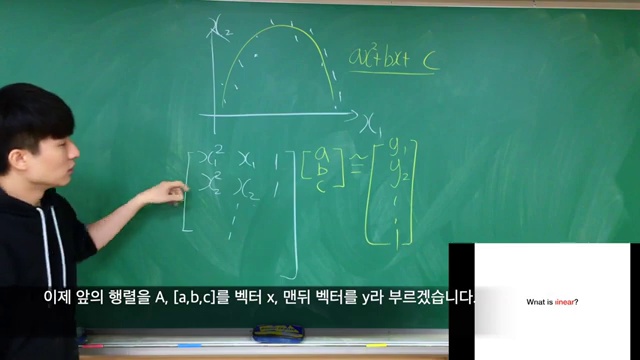 x₂
ax²+bx+ c
x₁
x₁² x₁ 1
x₂² x₂ 1
a
b
c
≃
y₁
y₂
이제 앞의 행렬을 A, [a,b,c]를 벡터 x, 맨뒤 벡터를 y라 부르겠습니다.
What is linear?